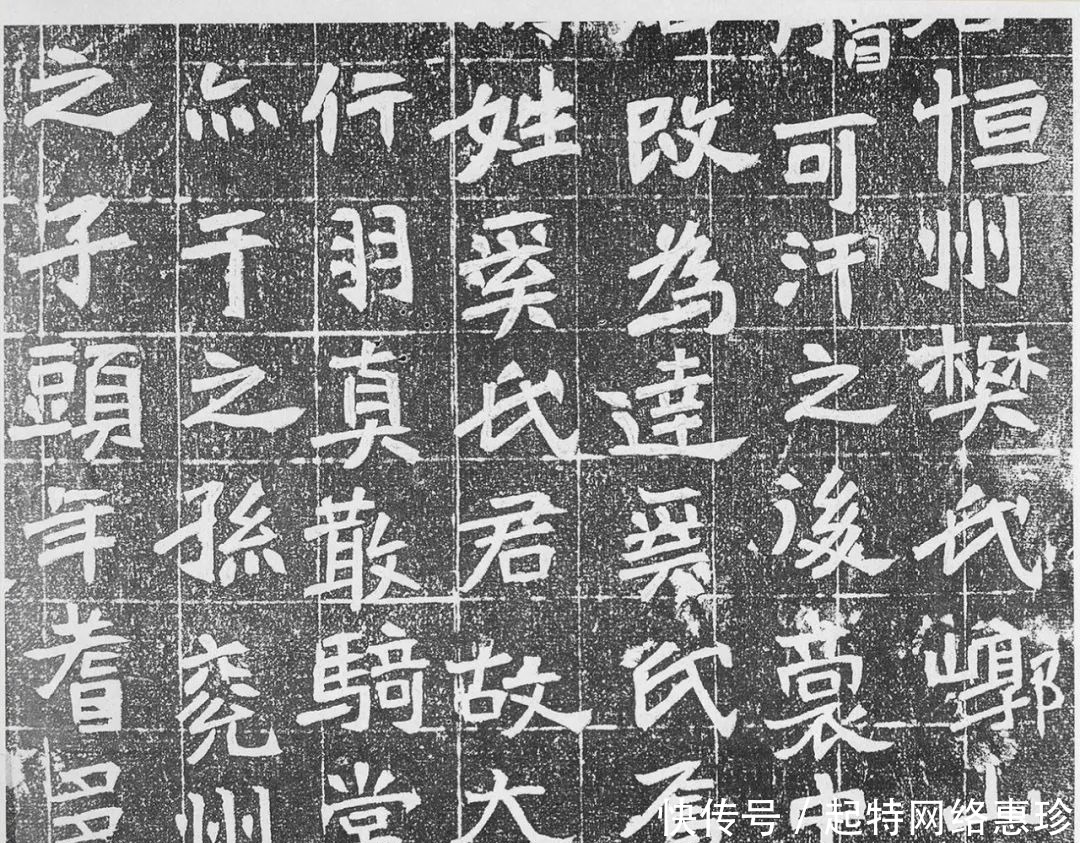 恒州樊氏崞山
可汗之後裳中
改為達奚氏
姓奚氏君故大
行羽真散騎常
尒于之孫兖州
之子頭年耆
快传号 / 起特网络惠珍